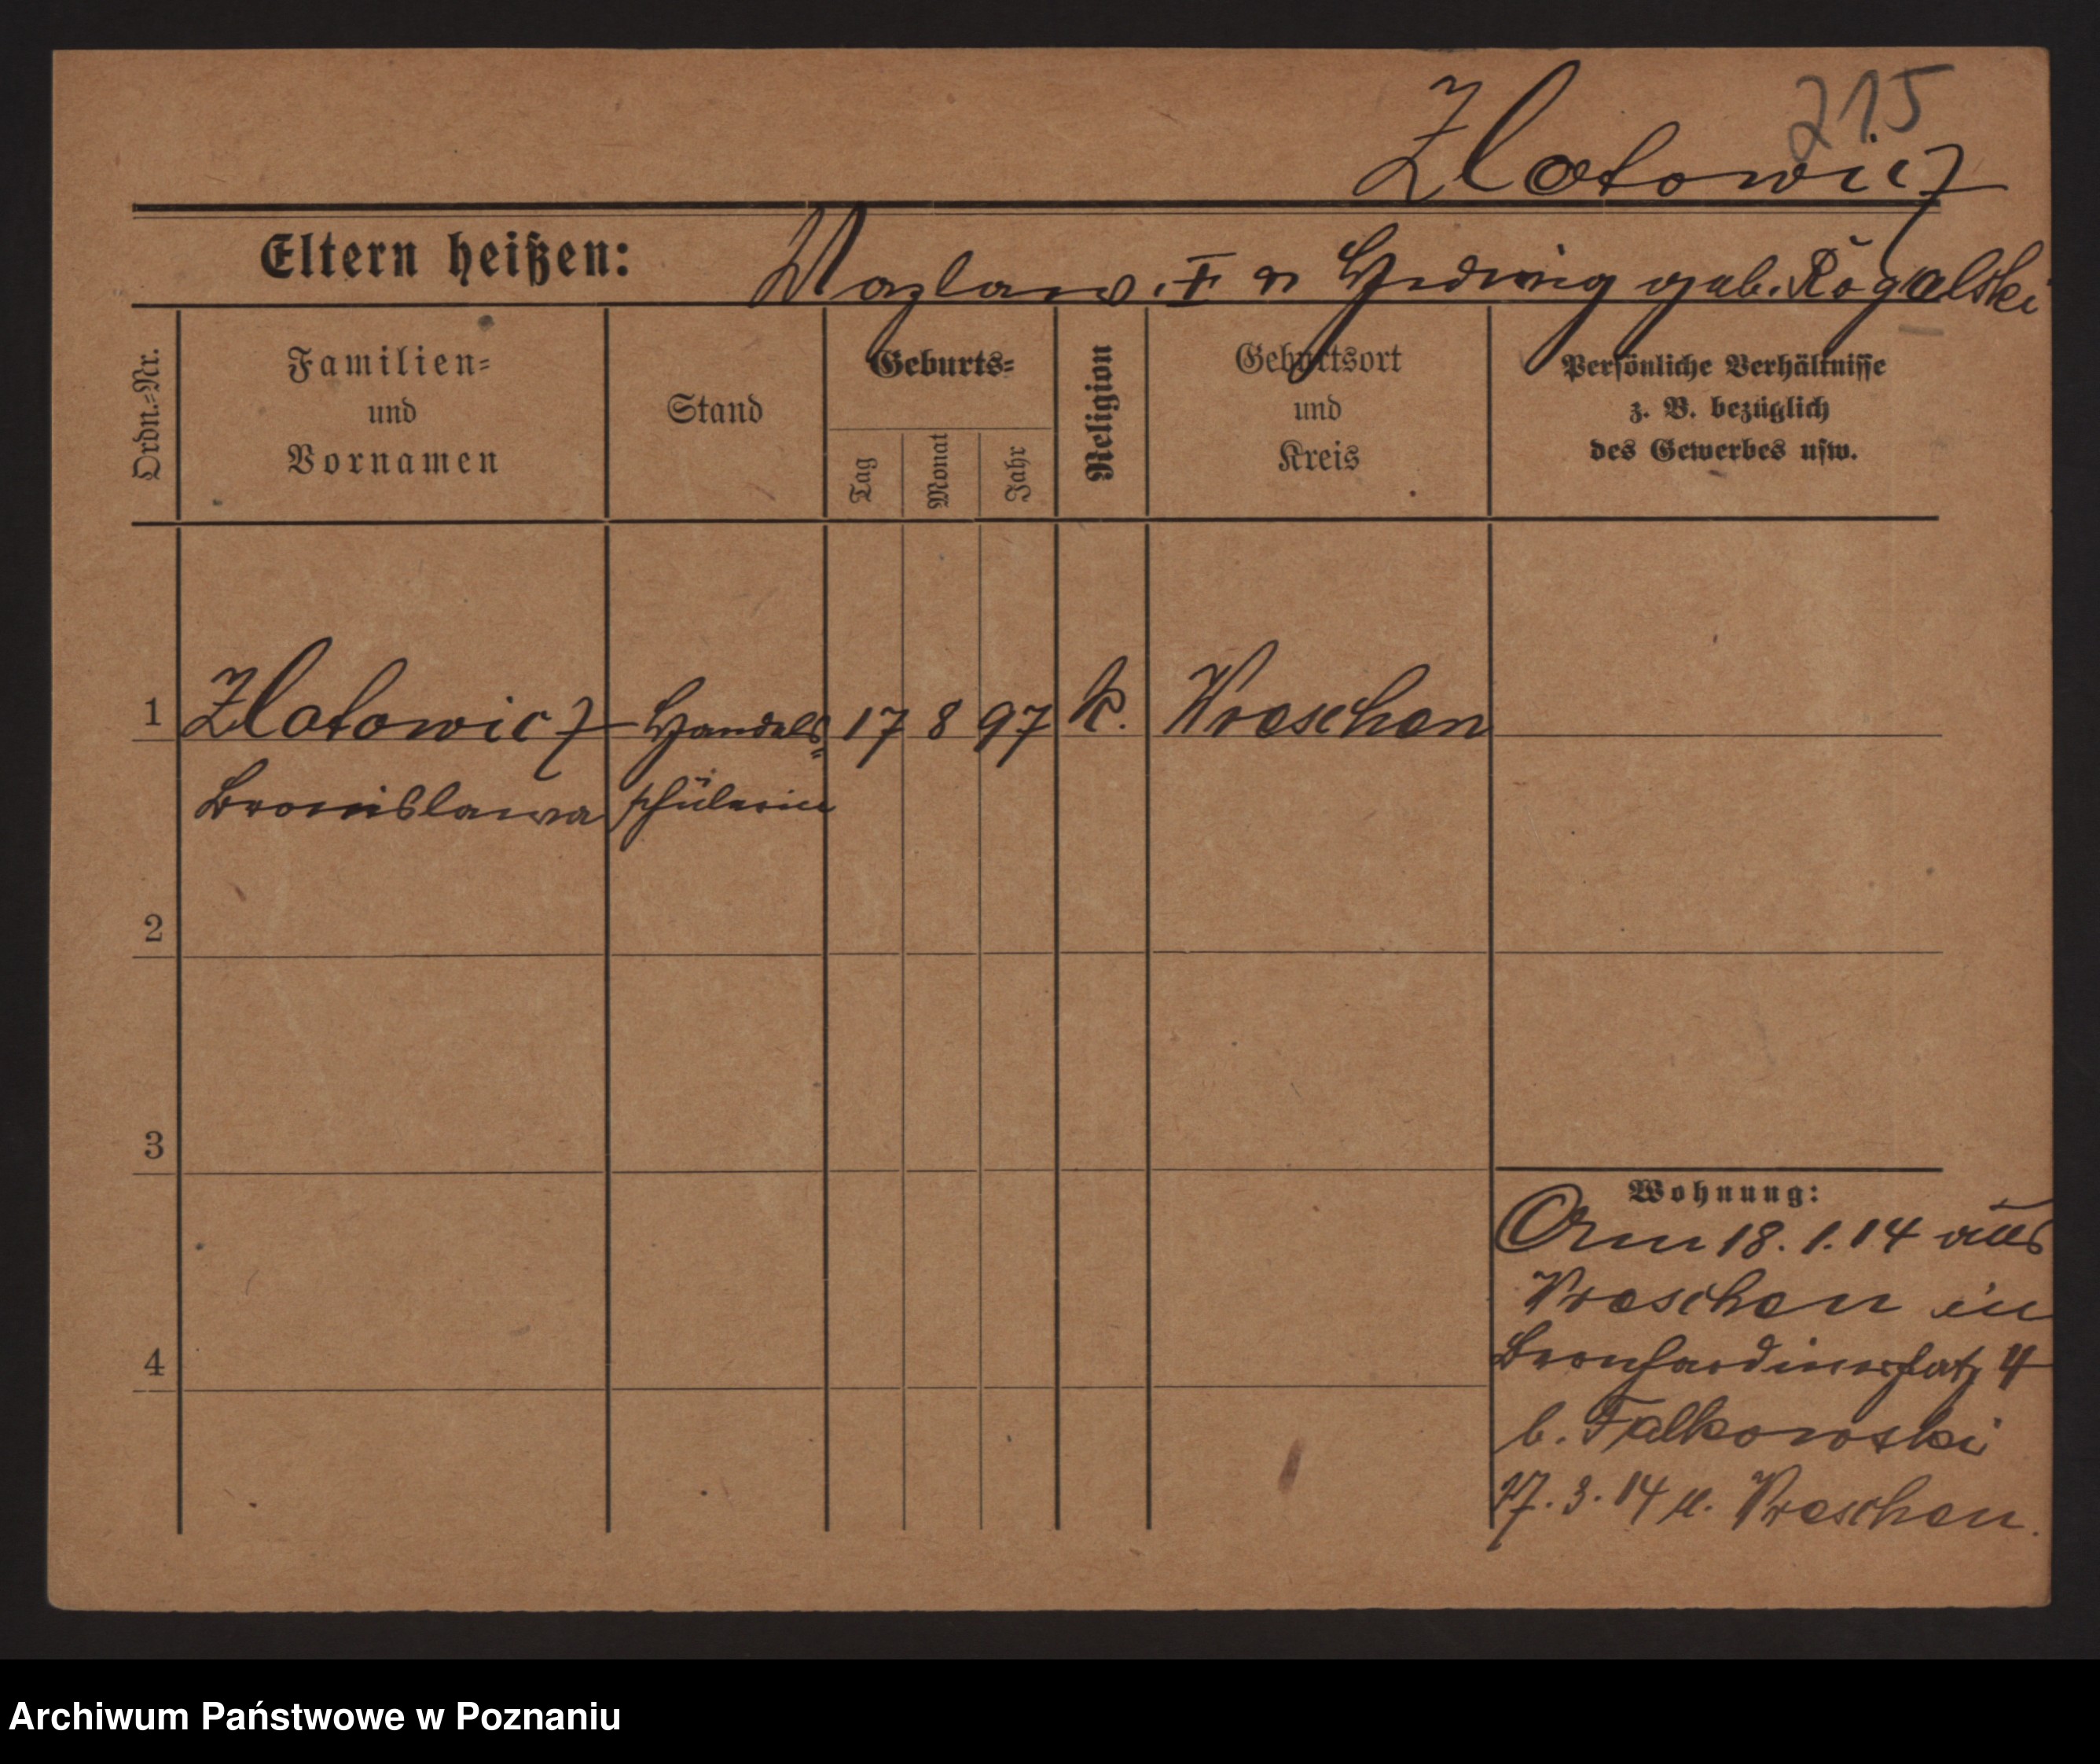 215
Zlotowicz
Eltern heißen: Wazlaw. I u Hedwig geb. Rogalski
Ordn.-Nr.
Familien-
und
Vornamen
Stand
Geburts-
Tag
Monat
Jahr
Religion
Geburtsort
und
Kreis
Persönliche Verhältnisse
z. B. bezüglich
des Gewerbes usw.
1 Zlotowicz Handels- 17 8 97 k. Wreschen
Bronislawa schülerin
2
3
4
Wohnung:
Am 18. 1. 14 aus
Wreschen in
Bernhardinerplatz 4
b. Falkowski
17. 3. 14 n. Wreschen.
Archiwum Państwowe w Poznaniu